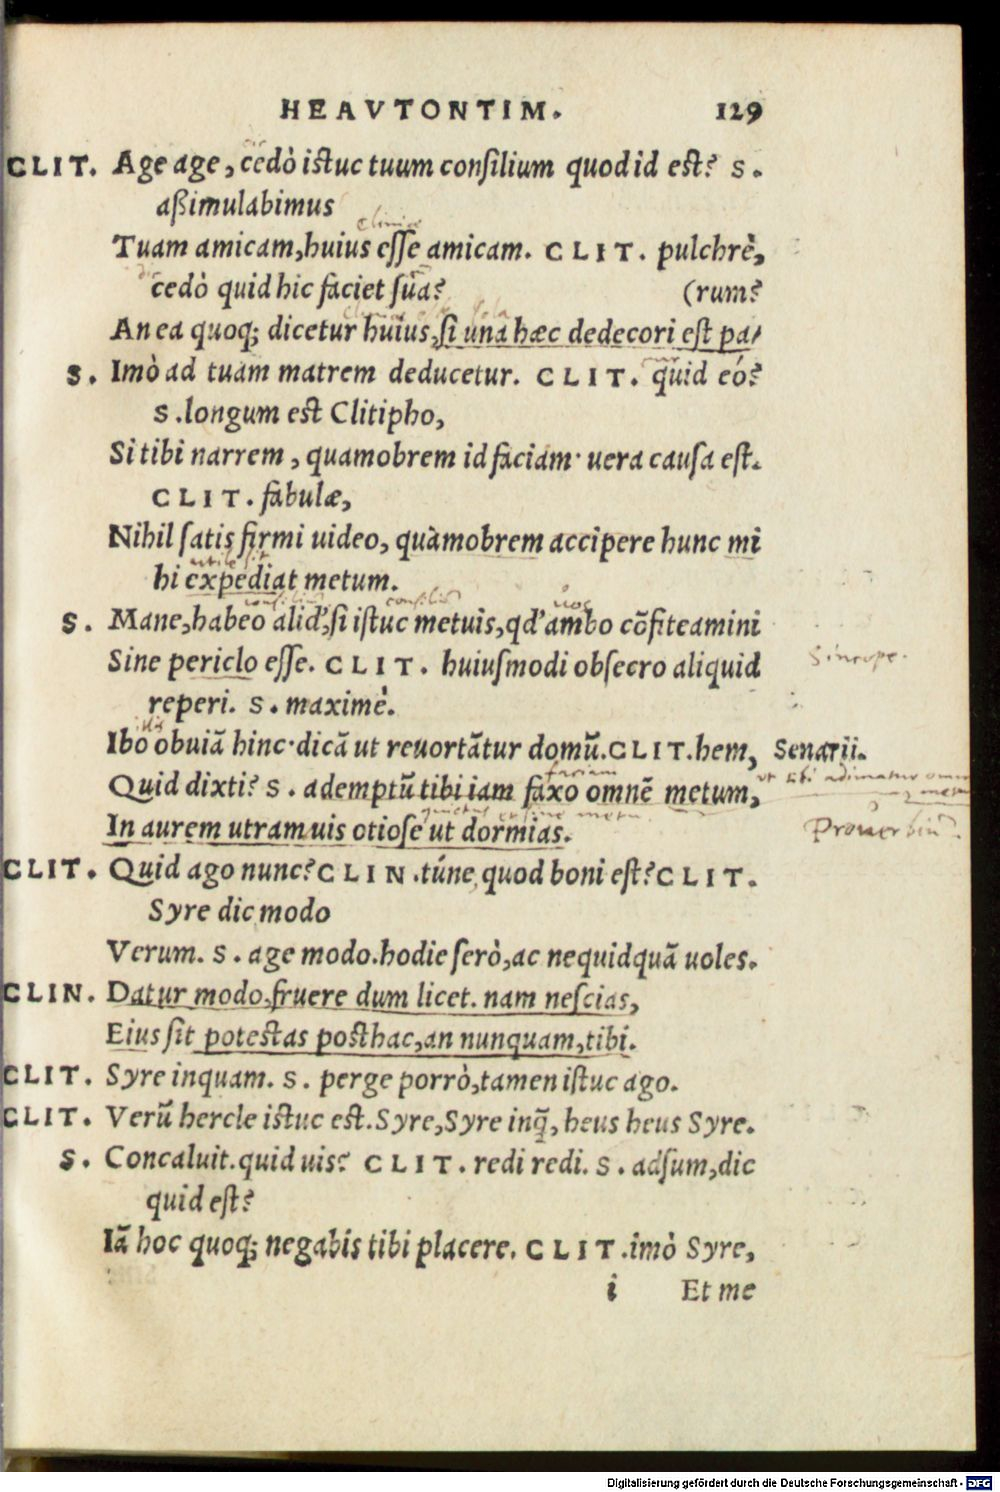 HEAVTONTIM. 129
CLIT. Age age, cedò istuc tuum consilium quod id est? S.
aßimulabimus
Tuam amicam, huius esse amicam. CLIT. pulchrè,
cedò quid hic faciet suã? (rum?
An ea quoq; dicetur huius, si una hæc dedecori est pa/
S. Imò ad tuam matrem deducetur. CLIT. quid eó?
S. longum est Clitipho,
Si tibi narrem, quamobrem id faciam· uera causa est.
CLIT. fabulæ,
Nihil satis firmi uideo, quàmobrem accipere hunc mi
utile sit
hi expediat metum.
consilium consilium
S. Mane, habeo alid', si istuc metuis, qd' ambo cõfiteamini
Sine periclo esse. CLIT. huiusmodi obsecro aliquid Sincope.
reperi. S. maximè.
Ibo obuiã hinc· dicã ut reuortãtur domũ. CLIT. hem, Senarii.
faciam
Quid dixti? S. ademptũ tibi iam faxo omnẽ metum, ut tibi adimatur
In aurem utramuis otiose ut dormias. Prouerbiũ.
CLIT. Quid ago nunc? CLIN. túne, quod boni est? CLIT.
Syre dic modo
Verum. S. age modo. hodie serò, ac nequidquã uoles.
CLIN. Datur modo, fruere dum licet. nam nescias,
Eius sit potestas posthac, an nunquam, tibi.
CLIT. Syre inquam. S. perge porrò, tamen istuc ago.
CLIT. Verũ hercle istuc est. Syre, Syre inq̃, heus heus Syre.
S. Concaluit. quid uis? CLIT. redi redi. S. adsum, dic
quid est?
Iã hoc quoq; negabis tibi placere. CLIT. imò Syre,
i Et me
Digitalisierung gefördert durch die Deutsche Forschungsgemeinschaft - DFG